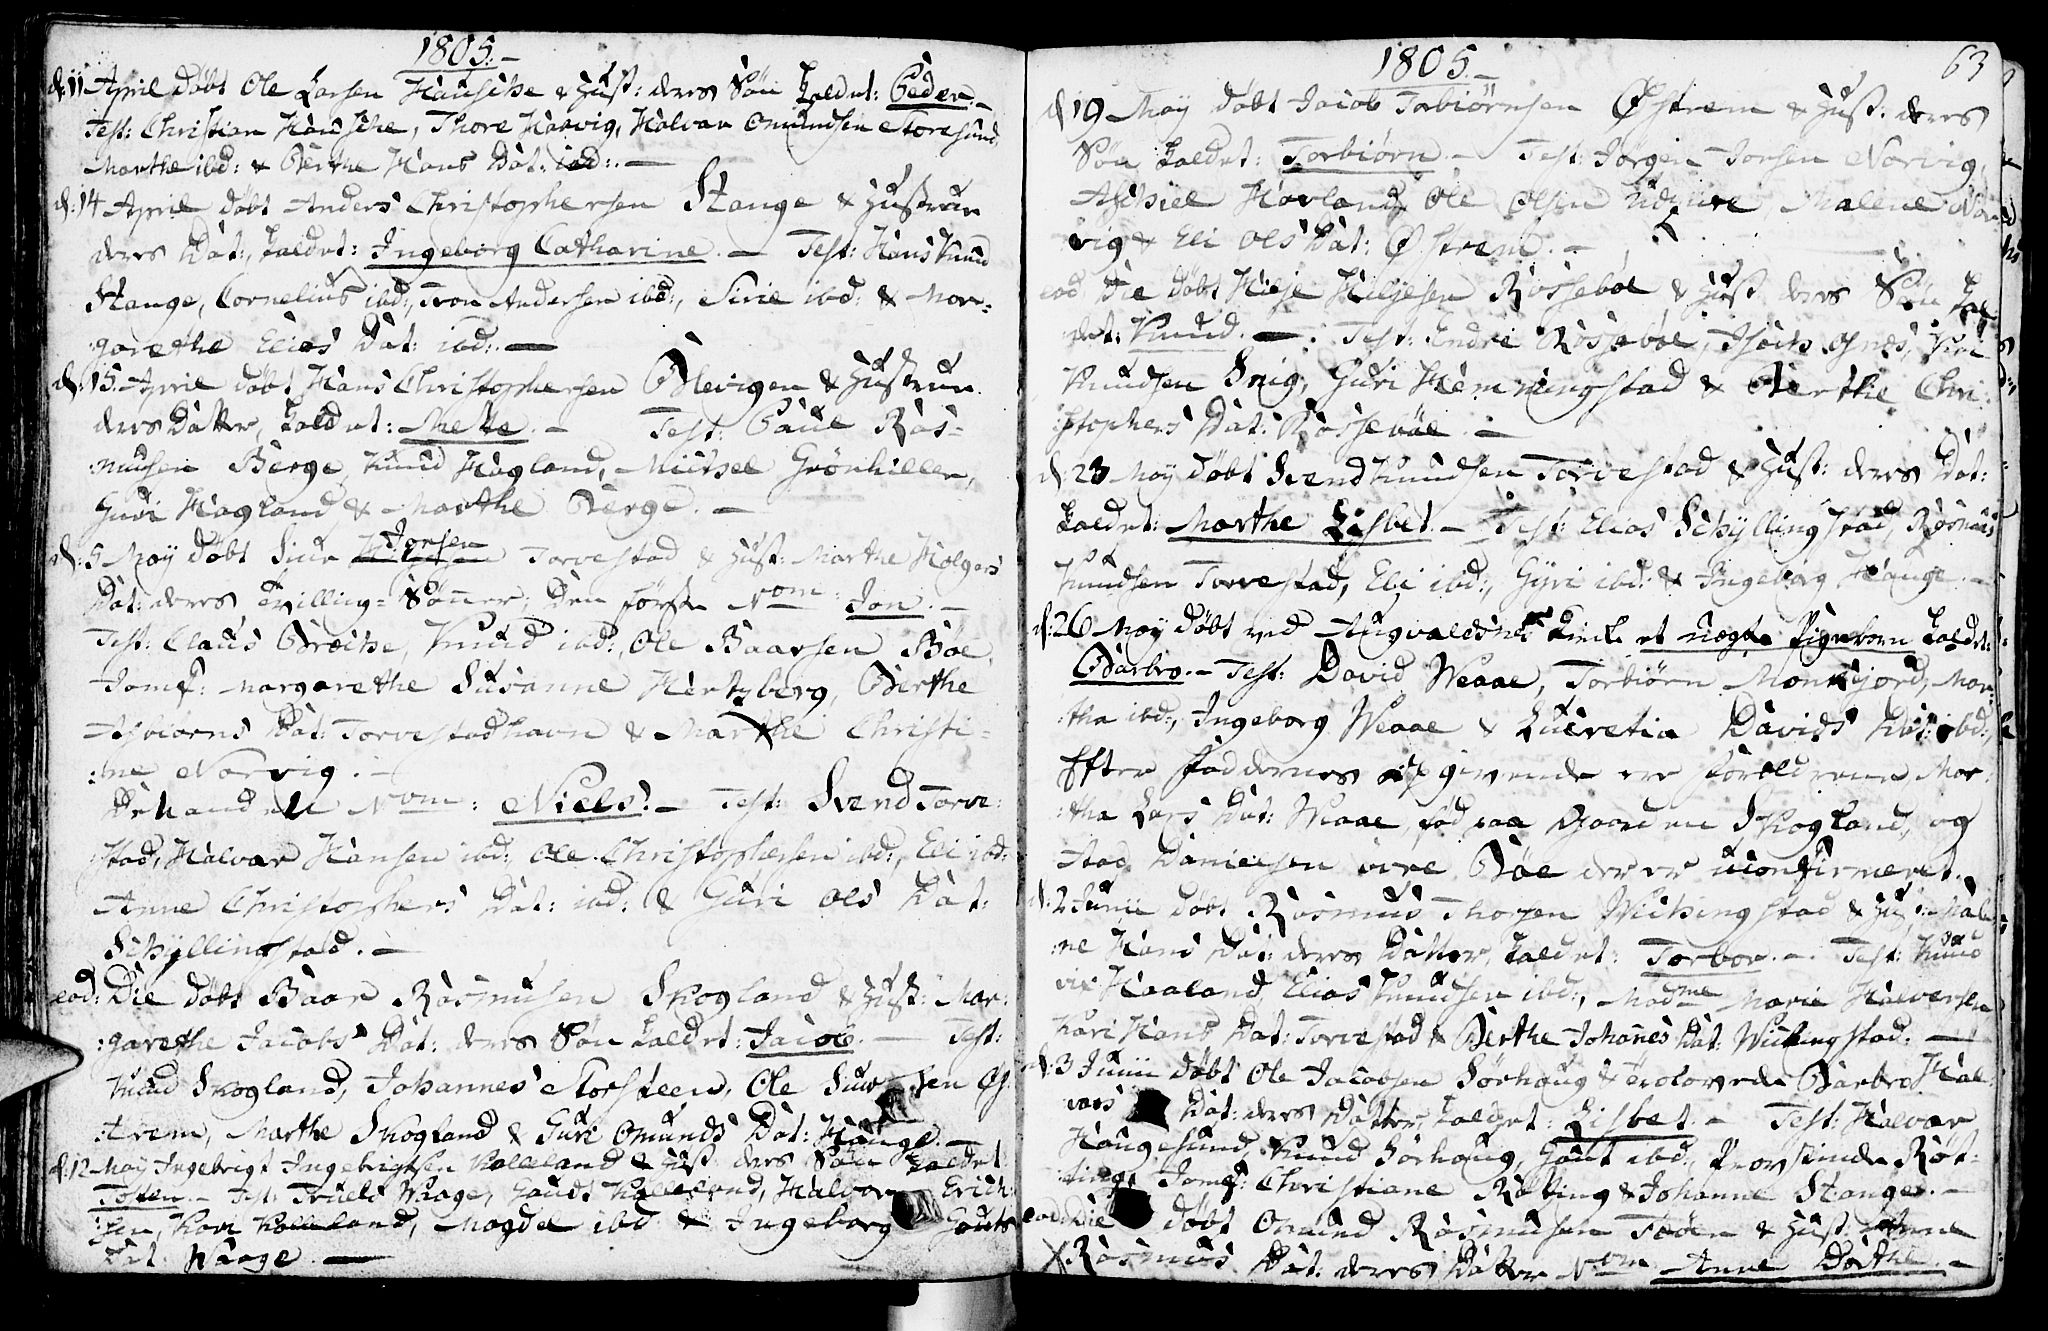 1805.-
d: 11 April döbt Ole Larsen Hausche & Hust: deres Sön kaldet: Peder.-
Test: Christian Hausche, Thore Hasvig, Halvar Omundsen Storesund,
Marthe ibd: & Berthe Hans Dat: ibd:.-
d: 14 April döbt Anders Christophersen Stange & Hustrue
deres Dat: kaldet: Ingeborg Catharine.- Test: Hans Knud
Stange, Cornelius ibd:, Tron Andersen ibd:, Sirie ibd: & Mar=
garethe Elias Dat: ibd:.-
d: 15 April döbt Hans Christophersen Blevigen & Hustrue
deres Datter, kaldet: Mette.- Test: Paul Ras=
musen Berge, Knud Hagland, Michel Grönhiller,
Guri Hagland & Marthe Berge.-
d: 5 May döbt Siur Jonsen Torvestad & Hust: Marthe Holgers
Dat: deres Tvilling= Sönner; Den förste Nom: Jon.-
Test: Claus Bræche, Knud ibd:, Ole Baarsen Böe,
Jomf: Margarethe Susanne Hertzberg, Berthe
Asbiörns Dat: Torvestadhavn & Marthe Christi=
:ne Norvig.-
Den anden Nom: Niels.- Test: Svend Torve:
stad, Halvar Hansen ibd: Ole Christophersen ibd:, Eli ibd:
Anne Christophers Dat: ibd: & Guri Ols Dat:
Schyllingstad.-
eod: Die döbt Baar Rasmusen Skogland & Hust: Mar:
:garethe Jacobs Dat: deres Sön kaldet: Jacob.- Test:
Knud Skogland, Johannes Storsteen, Ole Siur sen Ös
:trem, Marthe Skogland & Guri Omunds Dat: Hauge.-
d: 12 May Ingebrigt Ingebrigtsen Kalleland & Hust deres Sön kaldet
Tosten.- Test: Truels Waage, Gaudt Kalleland, Halvor Erich:
sen, Kari Kalleland, Magdel ibd: & Ingeborg Gauts
Dat: Waage.-
1805.-
63
d 19 May döbt Jacob Torbiörnsen Östrem & Hust: deres
Sön kaldet: Torbiörn.- Test: Jörgen Jonsen Norvig,
Aschiel Hovland, Ole Olsen Udvire, Malene Nor
vig & Eli Ols Dat: Östrem.-
eod Die döbt Hilje Hiljesen Rossebøe & Hust deres Sön kal
det: Knud.- Test: Endre Rossebøe,
Knudsen Snig, Guri Hemmingstad & Berthe Chri:
:stophers Dat: Rossebøe.-
d: 23 May döbt Svend Knudsen Torvestad & Hust: deres Dat:
kaldet: Marthe Lisbet.- Test: Elias Schyllingstad, Rasmus
Knudsen Torvestad, Eli ibd:, Gyri ibd: & Ingeborg Hauge.-
d: 26 May döbt ved Augvaldsnes Kirke et uægte Pigebarn kaldet:
Barbro.- Test: David Weaae, Torbiörn Monkejord, Mar:
:tha ibd:, Ingeborg Weaae & Lucretia Davids Dat: ibd:,
Efter Faddernes opgivende ere Foreldrene, Mar:
:tha Lars Dat: Weaae, föd paa Gaarden Skogland, og
Aad Danielsen övre Böe der er uconfirmeret.
d: 2 Junii döbt Rasmus Thorsen Wichingstad & Hust: Male
:ne Hans Dat: deres Datter, kaldet: Torbor.- Test: Knud
vix Haaland, Elias Knudsen ibd:, Madme Marie Halversen
Kari Hans Dat: Torvestad & Berthe Johanes Dat: Wichingstad.-
d: 3 Junii döbt Ole Jacobsen Sörhaug & Trolovede Barbro Hal
vars Dat: deres Datter, kaldet: Lisbet.- Test: Halvar
Haugesund, Knud Sörhaug, Gaut ibd:, Provstinde Röt:
ting, Jomf: Christiane Rötting & Johanne Stange.-
eod: Die döbt Omund Rasmusen Foöen & Hust: Anne
X Rasmus Dat: deres Datter Nom Anne Dorthe.-